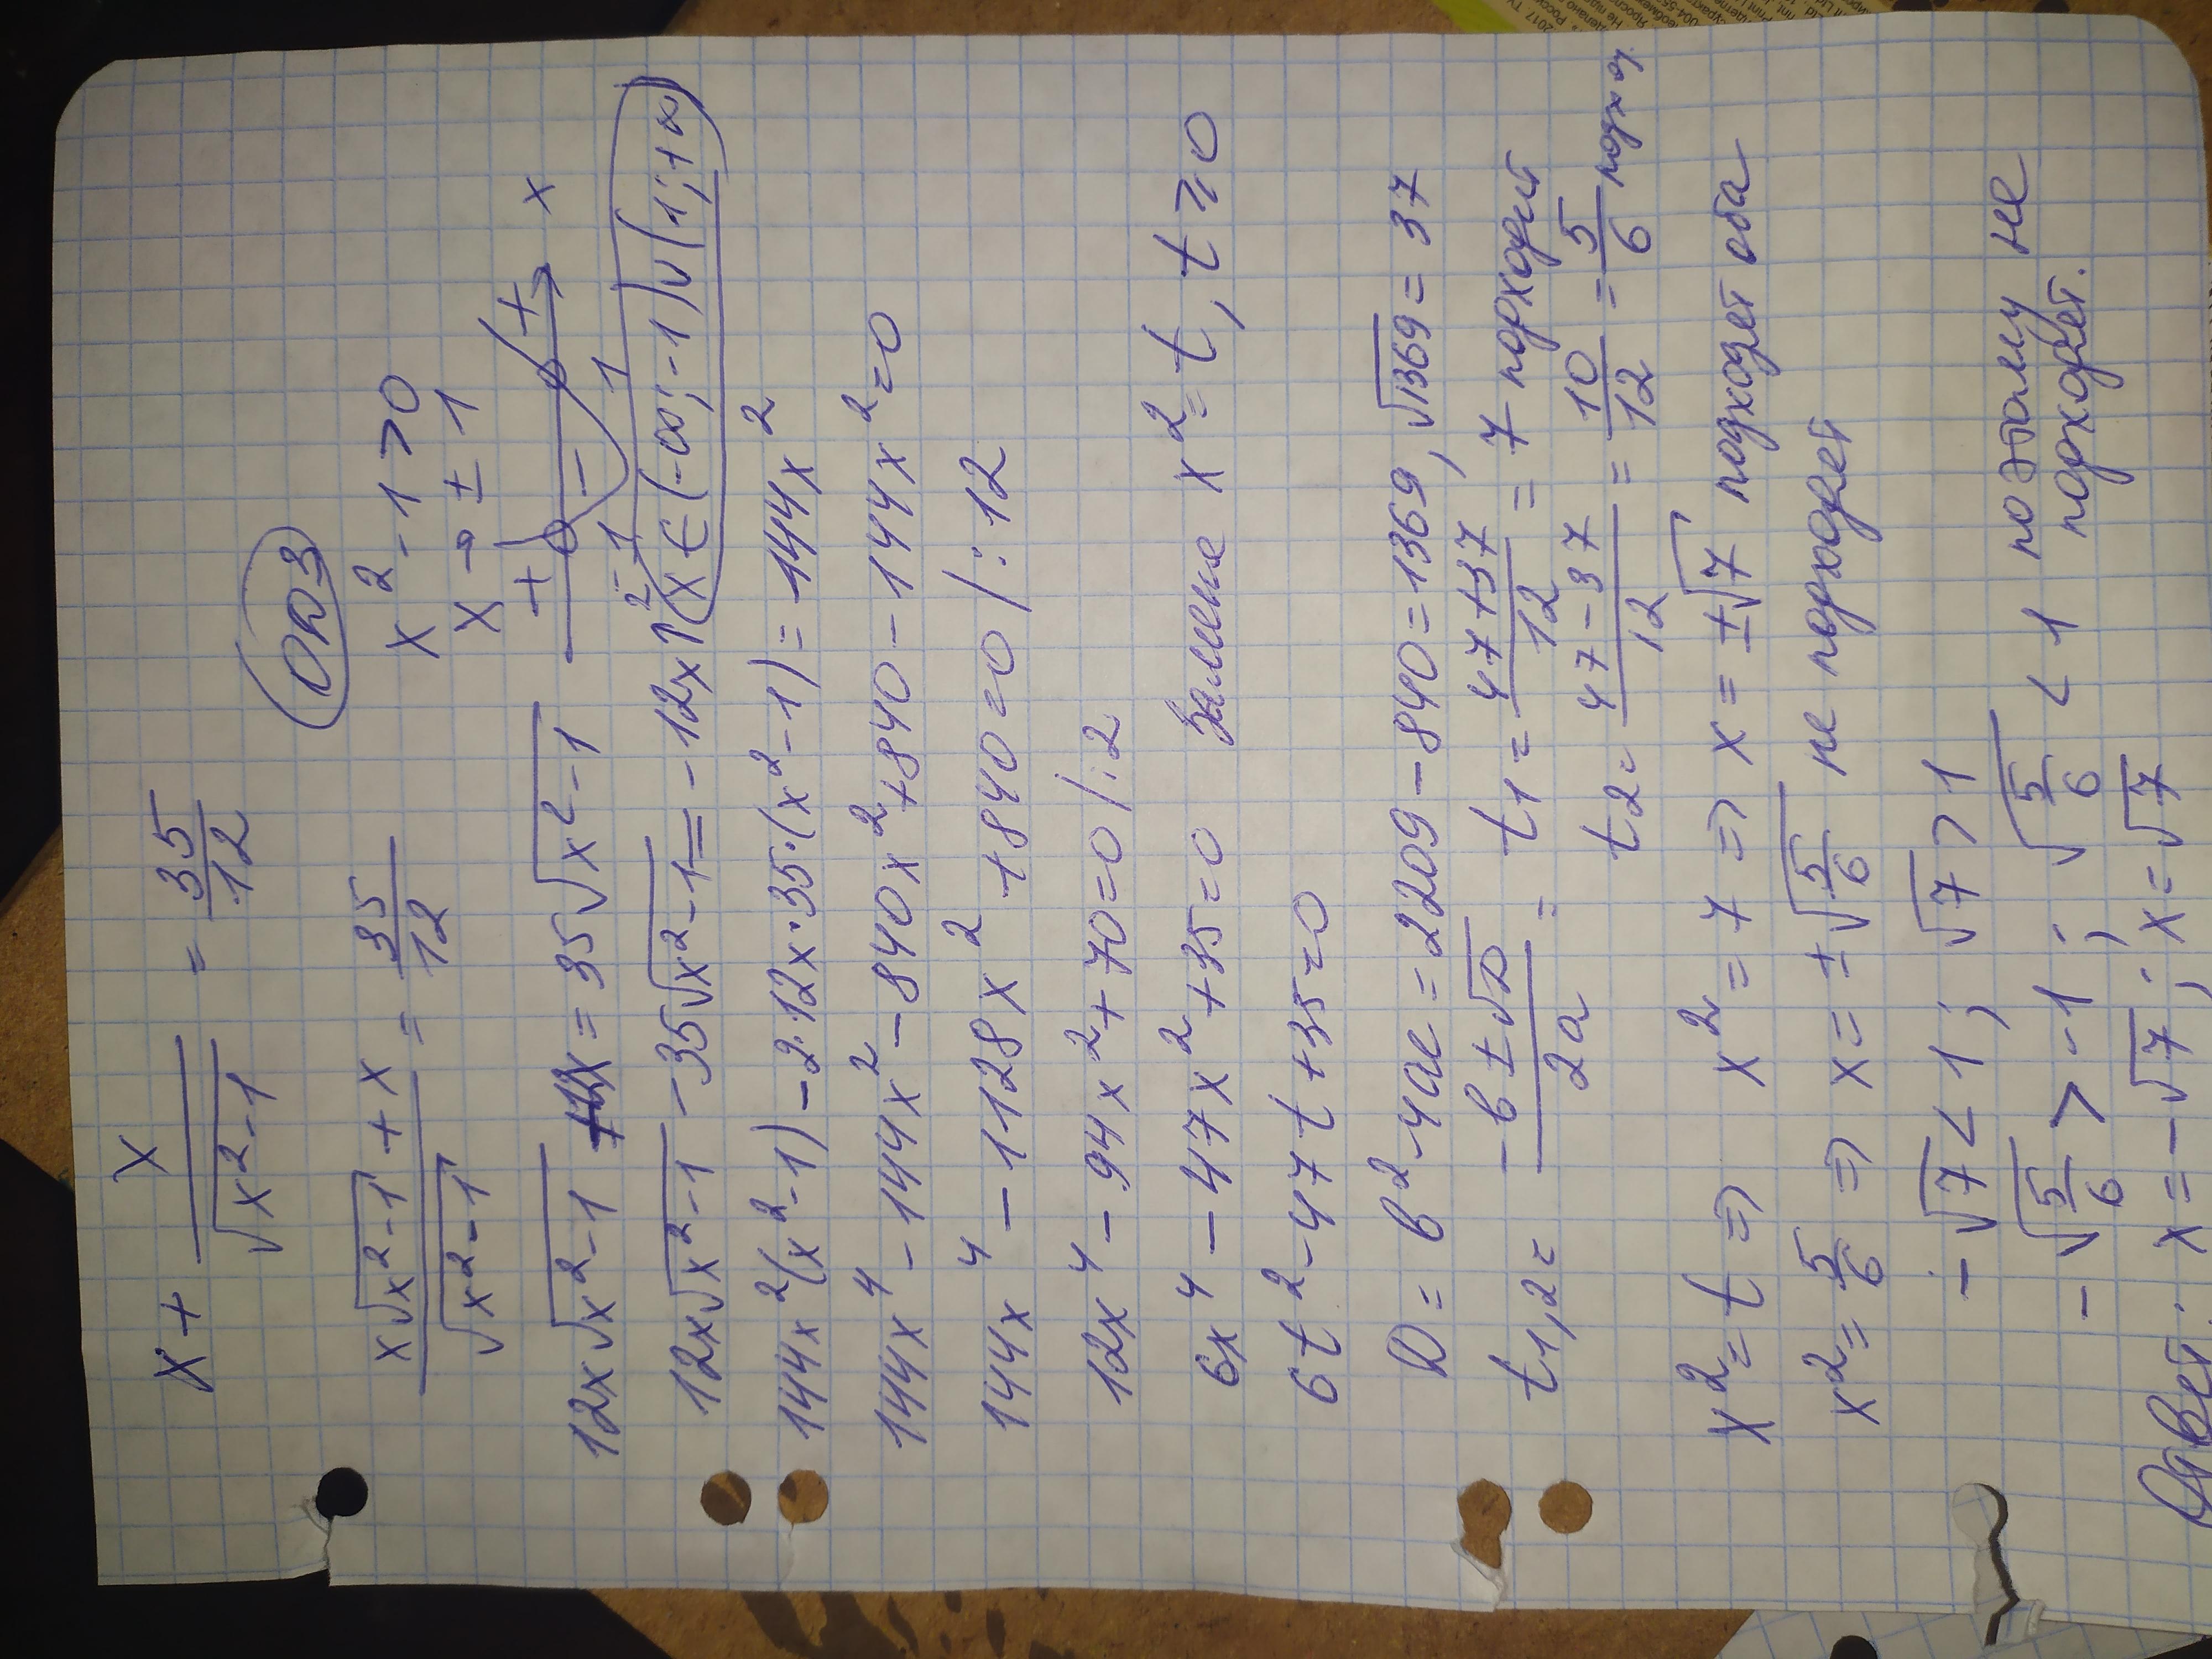 x + x/√(x²-1) = 35/12
ОДЗ
(x√(x²-1) + x)/√(x²-1) = 35/12
x² - 1 > 0
x → ± 1
12x√(x²-1) + 12x = 35√(x²-1)
+ - + x
-1 1
12x√(x²-1) - 35√(x²-1) = -12x ↑²
x ∈ (-∞; -1) ∪ (1; +∞)
144x²(x²-1) - 2·12x·35·(x²-1) = -144x²
144x⁴ - 144x² - 840x² + 840 - 144x² = 0
144x⁴ - 1128x² + 840 = 0 /:12
12x⁴ - 94x² + 70 = 0 /:2
6x⁴ - 47x² + 35 = 0 Замене x² = t, t ≥ 0
6t² - 47t + 35 = 0
D = b² - 4ac = 2209 - 840 = 1369, √1369 = 37
t1,2 = (-b ± √D)/2a = t1 = (47 + 37)/12 = 7 подходит
t2 = (47 - 37)/12 = 10/12 = 5/6
x² = t ⇒ x² = 7 ⇒ x = ±√7 подходет оба
x² = 5/6 ⇒ x = ±√(5/6) не подходет
-√7 < 1; √7 > 1
-√(5/6) > -1; √(5/6) < 1 поэтаму не
подходет.
Ответ: x = -√7; x = √7